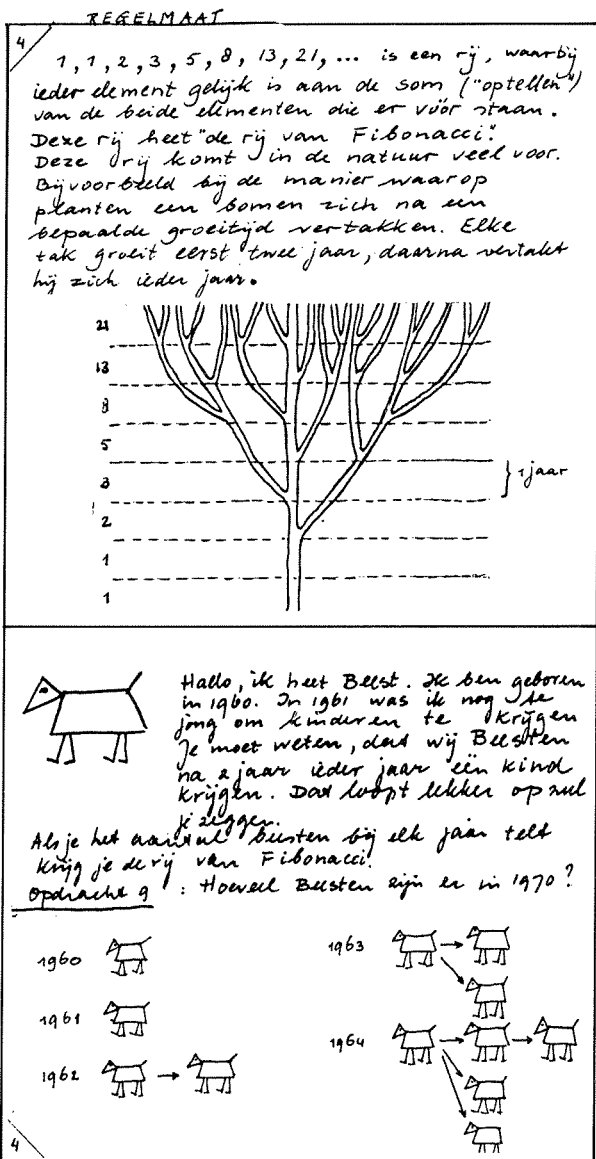 REGELMAAT
4
1, 1, 2, 3, 5, 8, 13, 21, ... is een rij, waarbij
ieder element gelijk is aan de som ("optellen")
van de beide elementen die er vóór staan.
Deze rij heet "de rij van Fibonacci".
Deze rij komt in de natuur veel voor.
Bijvoorbeeld bij de manier waarop
planten een bomen zich na een
bepaalde groeitijd vertakken. Elke
tak groeit eerst twee jaar, daarna vertakt
hij zich ieder jaar.
21
13
8
5
3
} 1 jaar
2
1
1
Hallo, ik heet Beest. Ik ben geboren
in 1960. In 1961 was ik nog te
jong om kinderen te krijgen
Je moet weten, dat wij Beesten
na 2 jaar ieder jaar één kind
krijgen. Dat loopt lekker op zul
je zeggen.
Als je het aantal beesten bij elk jaar telt
krijg je de rij van Fibonacci.
Opdracht 9 : Hoeveel Beesten zijn er in 1970?
1960
1961
1962
1963
1964
4